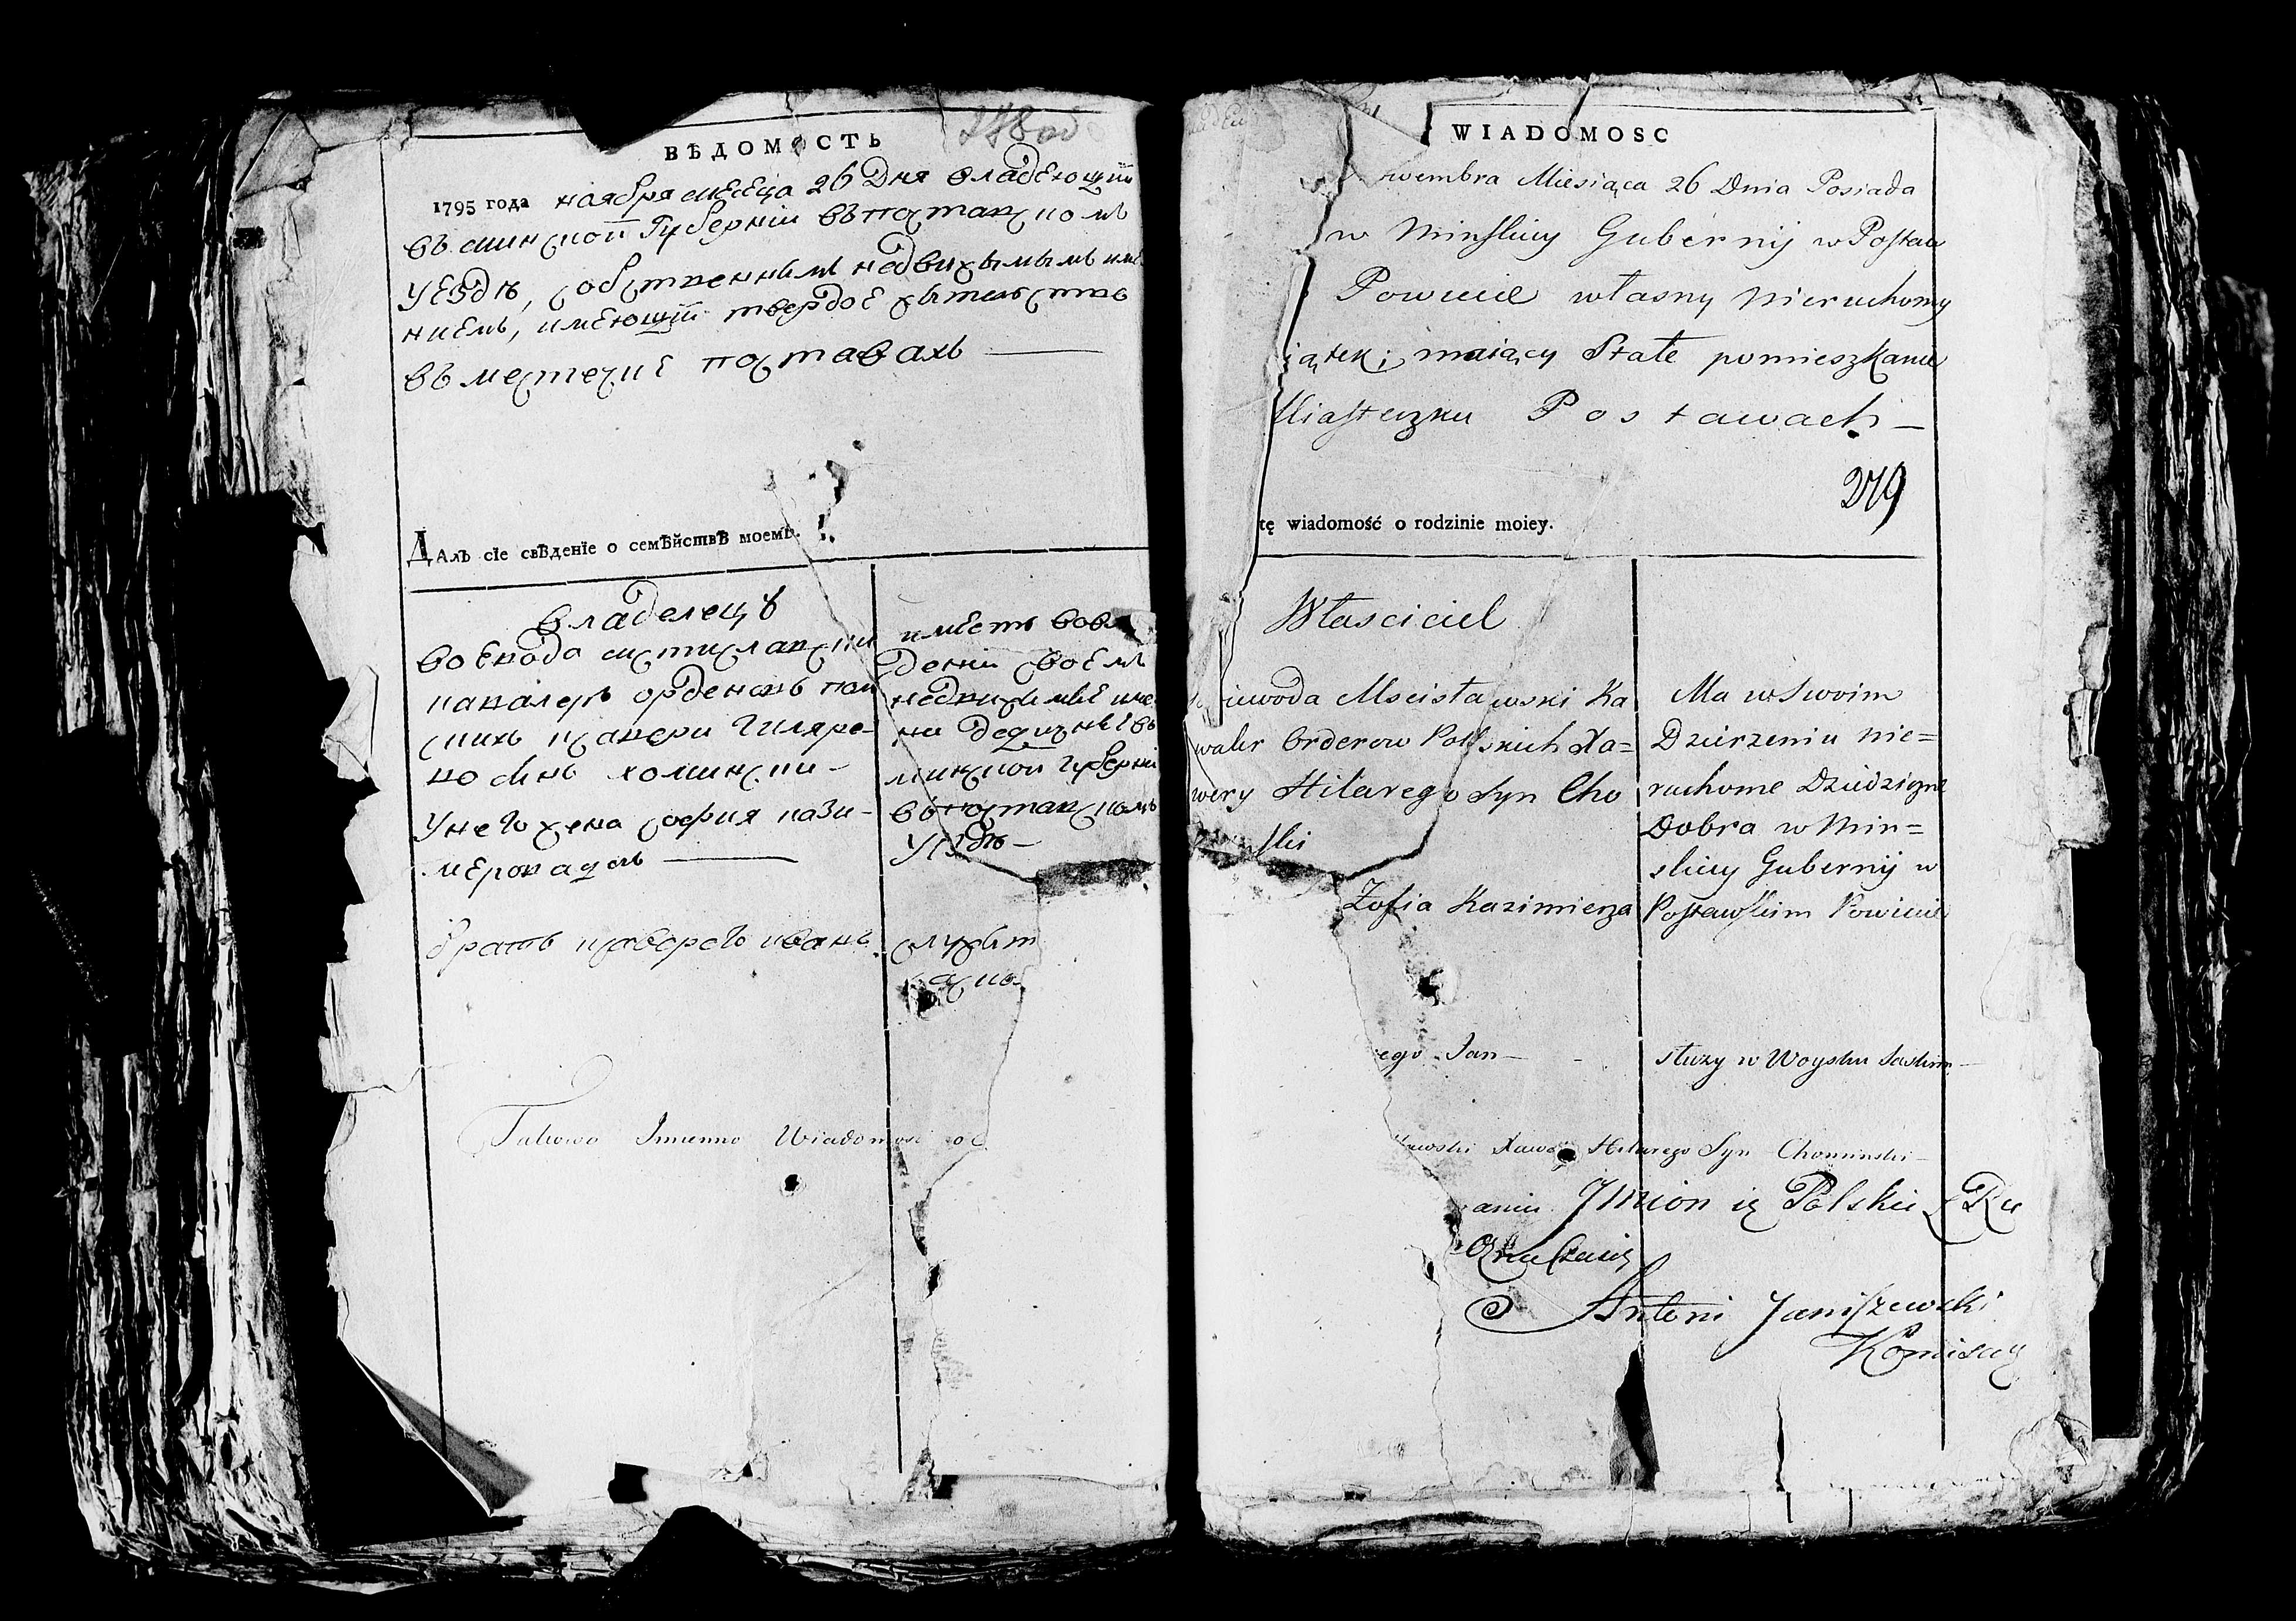 ВѢДОМОСТЬ
1795 года ноября месеца 26 Дня владеющїй
въ минской Губернїи въ поставскомъ
уездѣ, собственнымъ недвижымымъ име
ниемъ, имеющїй твердое жытельство
въ местечкѣ поставахъ
Далъ сїе свѣденїе о семѣйствѣ моемъ.
владелецъ
воевода мстиславски
кавалеръ орденовъ пол
скихъ ксавери Гиляре-
но сынъ хомински-
У него жена софия кази-
меровасъ
имеетъ вовла
дении своемъ
недвижимые име
ни дедизные въ
минской Губерни
въ поставскомъ
уездѣ
братъ ксаверего иванъ
служыт
Takowo Imienno Wiadomosc
WIADOMOSC
wembra Miesiąca 26 Dnia Posiada
w Minskiey Gubernij w Postaw
Powiecie własny Nieruchomy
iątek; maiący Stałe pomieszkanie
Miasteczku Postawach
279
tę wiadomość o rodzinie moiey.
Własciciel
iewoda Mscisławski Ka
waler Orderow Polskich Xa=
wery Hilarego Syn Cho
ski
Zofia Kazimierza
Ma w Swoim
Dzierzeniu nie=
ruchome Dziedzizne
Dobra w Min=
skiey Gubernij w
Postawskim Powiecie
ego Jan
słuzy w Woysku Saskim
awski Xawe Hilarego Syn Chominski
aniu Jmion ię Polskie
Antoni Janiszewski
Komisarz